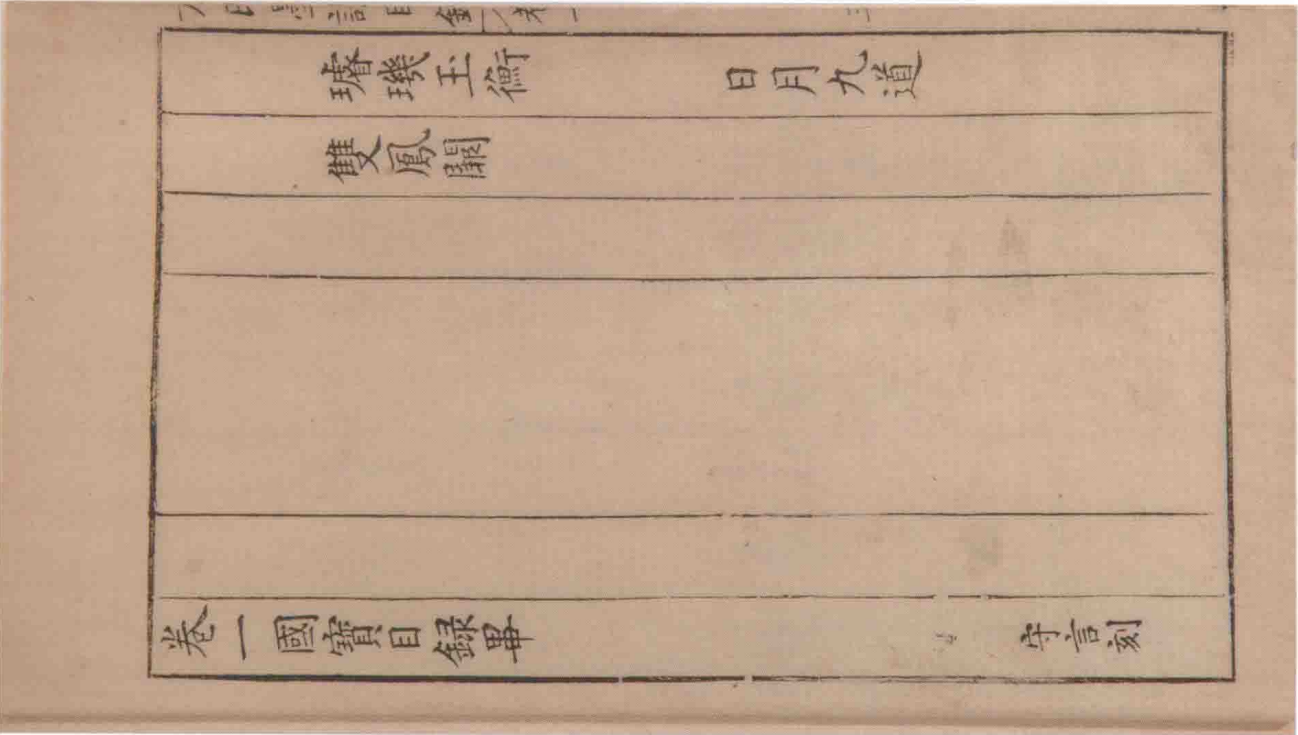 璿璣玉衡 日月九道
雙鳳闕
卷一國寶目録畢 守言刻